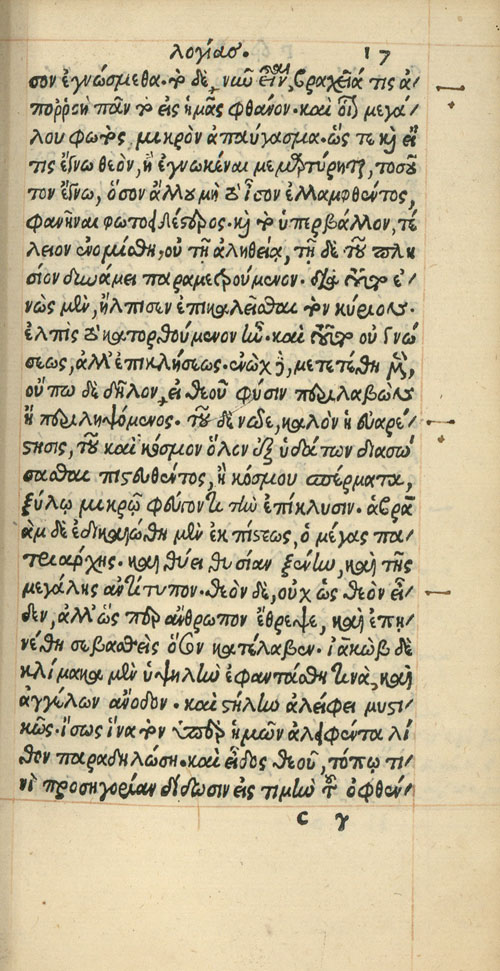 λογίας. 17
σον ἐγνώσμεθα. τὸ δὲ, νῦν εἶναι, βραχεῖά τις ἀ
πορροὴ πᾶν τὸ εἰς ἡμᾶς φθάνον. καὶ οἷον μεγά
λου φωτὸς μικρὸν ἀπαύγασμα. ὥς τε καὶ εἴ
τις ἔγνω θεὸν, ἢ ἐγνωκέναι μεμαρτύρηται, τοσοῦ
τον ἔγνω, ὅσον ἄλλου μὴ τὸ ἶσον ἐλλαμφθέντος,
φανῆναι φωτοειδέστερος. καὶ τὸ ὑπερβάλλον, τέ
λειον ἐνομίσθη, οὐ τῇ ἀληθείᾳ, τῇ δὲ τοῦ πλη
σίον δυνάμει παραμετρούμενον. διὰ τοῦτο ἐ
νὼς μὲν, ἤλπισεν ἐπικαλεῖσθαι τὸν κύριον.
ἐλπὶς τὸ κατορθούμενον ἦν. καὶ τοῦτο οὐ γνώ
σεως, ἀλλ' ἐπικλήσεως. ἐνὼχ δὲ, μετετέθη μὲν,
οὔπω δὲ δῆλον, εἰ θεοῦ φύσιν περιλαβὼν
ἢ περιληψόμενος. τοῦ δὲ νῶε, καλὸν ἡ εὐαρέ
στησις, τοῦ καὶ κόσμον ὅλον ἐξ ὑδάτων διασώ
σασθαι πιστευθέντος, ἢ κόσμου σπέρματα,
ξύλῳ μικρῷ φεύγοντι τὴν ἐπίκλυσιν. ἀβραὰ
ὰμ δὲ ἐδικαιώθη μὲν ἐκ πίστεως, ὁ μέγας πα
τριάρχης. καὶ θύει θυσίαν ξένην, καὶ τῆς
μεγάλης ἀντίτυπον. θεὸν δὲ, οὐχ ὡς θεὸν εἶ
δεν, ἀλλ' ὡς περ ἄνθρωπον ἔθρεψε, καὶ ἐπῃ
νέθη σεβασθεὶς ὅσον κατέλαβεν. ἰακὼβ δὲ
κλίμακα μὲν ὑψηλὴν ἐφαντάσθη τινὰ, καὶ
ἀγγέλων ἄνοδον. καὶ στήλην ἀλείφει μυστι
κῶς. ἴσως ἵνα τὸν ὑπὲρ ἡμῶν ἀλειφθέντα λί
θον παραδηλώσῃ. καὶ εἶδος θεοῦ, τόπῳ τι
νὶ προσηγορίαν δίδωσιν εἰς τιμὴν τοῦ ὀφθέν
C γ